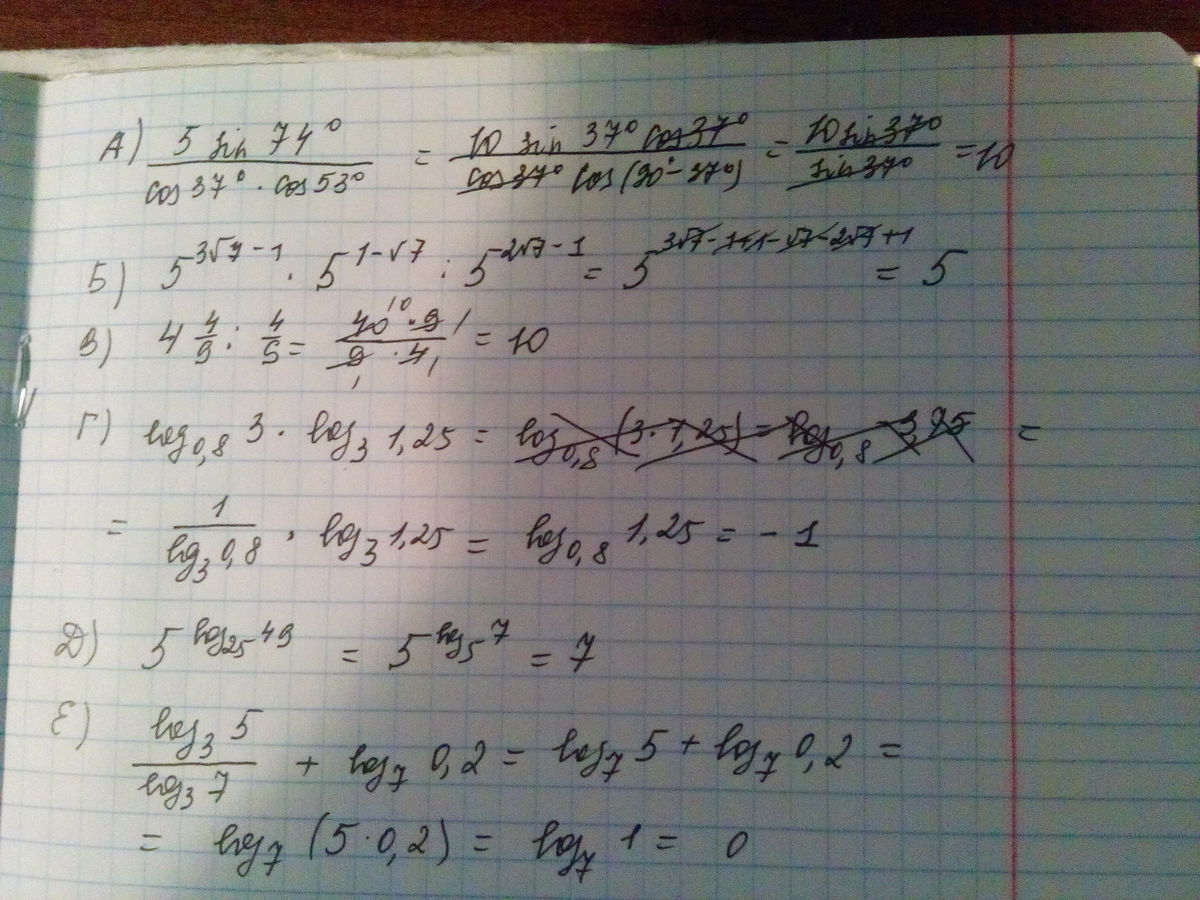 А) 5 sin 74° / cos 37° · cos 53° = 10 sin 37° cos 37° / cos 37° cos (90° - 37°) = 10 sin 37° / sin 37° = 10
Б) 5^(3√7 - 1) · 5^(1 - √7) : 5^(2√7 - 1) = 5^(3√7 - 1 + 1 - √7 - 2√7 + 1) = 5
В) 4 4/9 : 4/9 = 40 10 · 9 1 / 9 1 · 4 1 = 10
Г) log_0,8 3 · log_3 1,25 = log_0,8 (3 · 1,25) = log_0,8 3,75 =
= 1 / log_3 0,8 · log_3 1,25 = log_0,8 1,25 = - 1
Д) 5^(log_25 49) = 5^(log_5 7) = 7
Е) log_3 5 / log_3 7 + log_7 0,2 = log_7 5 + log_7 0,2 =
= log_7 (5 · 0,2) = log_7 1 = 0